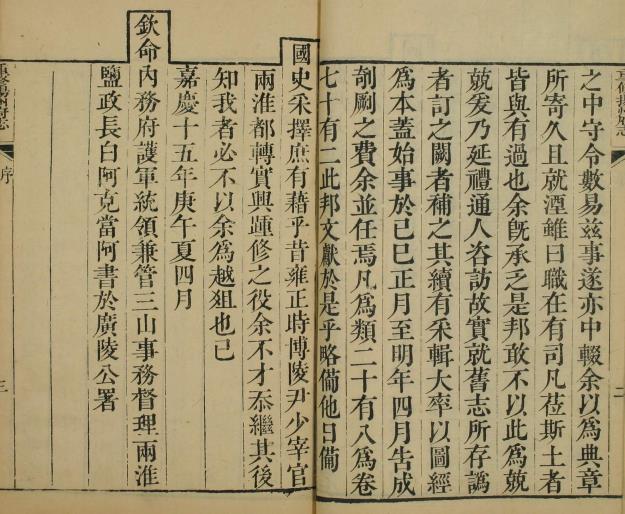 之中守令數易茲事遂亦中輟余以爲典章
所寄久且就湮雖曰職在有司凡莅斯土者
皆與有過也余旣承乏是邦敢不以此爲兢
兢爰乃延禮通人咨訪故實就舊志所存譌
者訂之闕者補之其續有采輯大率以圖經
爲本蓋始事於己巳正月至明年四月告成
剞劂之費余並任焉凡爲類二十有八爲卷
七十有二此邦文獻於是乎略備他日備
國史采擇庶有藉乎昔雍正時博陵尹少宰官
兩淮都轉實興踵修之役余不才忝繼其後
知我者必不以余爲越狙也已
嘉慶十五年庚午夏四月
欽命內務府護軍統領兼管三山事務督理兩淮
鹽政長白阿克當阿書於廣陵公署
序
三
二